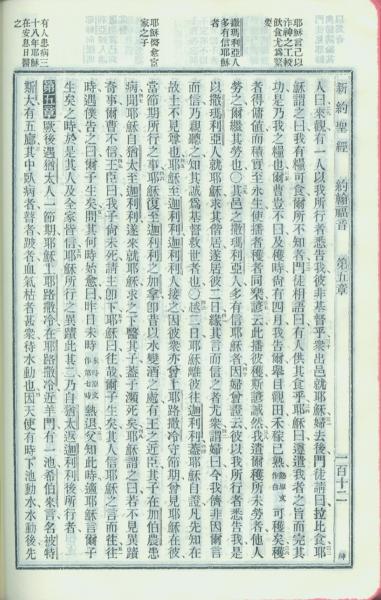 新約聖經 約翰福音 第五章 一百十二
耶穌言己以
作神之工較
飲食尤為緊
要
撒瑪利亞人
多有信耶穌
者
耶穌愈宦官
家之子
有人患病三
十八年耶穌
在安息日醫
之
人曰來觀有一人以我所行者悉告我彼非基督乎眾出邑就耶穌婦去後門徒請曰拉比食耶
穌謂之曰我有糧可食爾所不知者門徒相語曰有人供其食乎耶穌曰遵遣我者之旨而完其
功是乃我之糧也爾曹豈不曰及穫時尚有四月我告爾舉目觀田禾稼已熟熟原文作白可穫矣穫
者得傭值而積實至永生使播者穫者同樂諺云此播彼穫斯諺誠然我遣爾穫所未勞者他人
勞之爾繼其勞也○其邑之撒瑪利亞人多有信耶穌者因婦曾證云彼以我所行者悉告我是
以撒瑪利亞人就耶穌求其偕居遂居彼二日緣其言而信之者尤眾謂婦曰今我儕非因爾言
而信乃親聽之知其誠為基督救世者也○越二日耶穌離彼往迦利利蓋耶穌自證凡先知在
故土不見尊也耶穌至迦利利迦利利人接之因彼眾亦曾上耶路撒冷守節期曾見耶穌在彼
當節期所行之事耶穌復至迦利利之加拿卽昔以水變酒之處有王之近臣其子在加伯農患
病聞耶穌自猶太至迦利利遂來就耶穌求之下醫其子蓋子瀕死矣耶穌謂之曰若不見異蹟
奇事爾曹不信王臣曰我子尚未死請主卽下耶穌曰往哉爾子生矣其人信耶穌之言而往往
時遇僕告之曰爾子生矣問其何時始愈曰昨日未時未時原文作第七時熱退父知此時適耶穌言爾子
生矣之時於是其人及全家皆信耶穌所行之異蹟此其二乃自猶太返迦利利後所行者
第五章 厥後遇猶太人一節期耶穌上耶路撒冷在耶路撒冷近羊門有一池希伯來言名被特
斯大有五廊其中臥病者瞽者跛者血氣枯者甚眾待水動也因天使有時下池動水水動後先